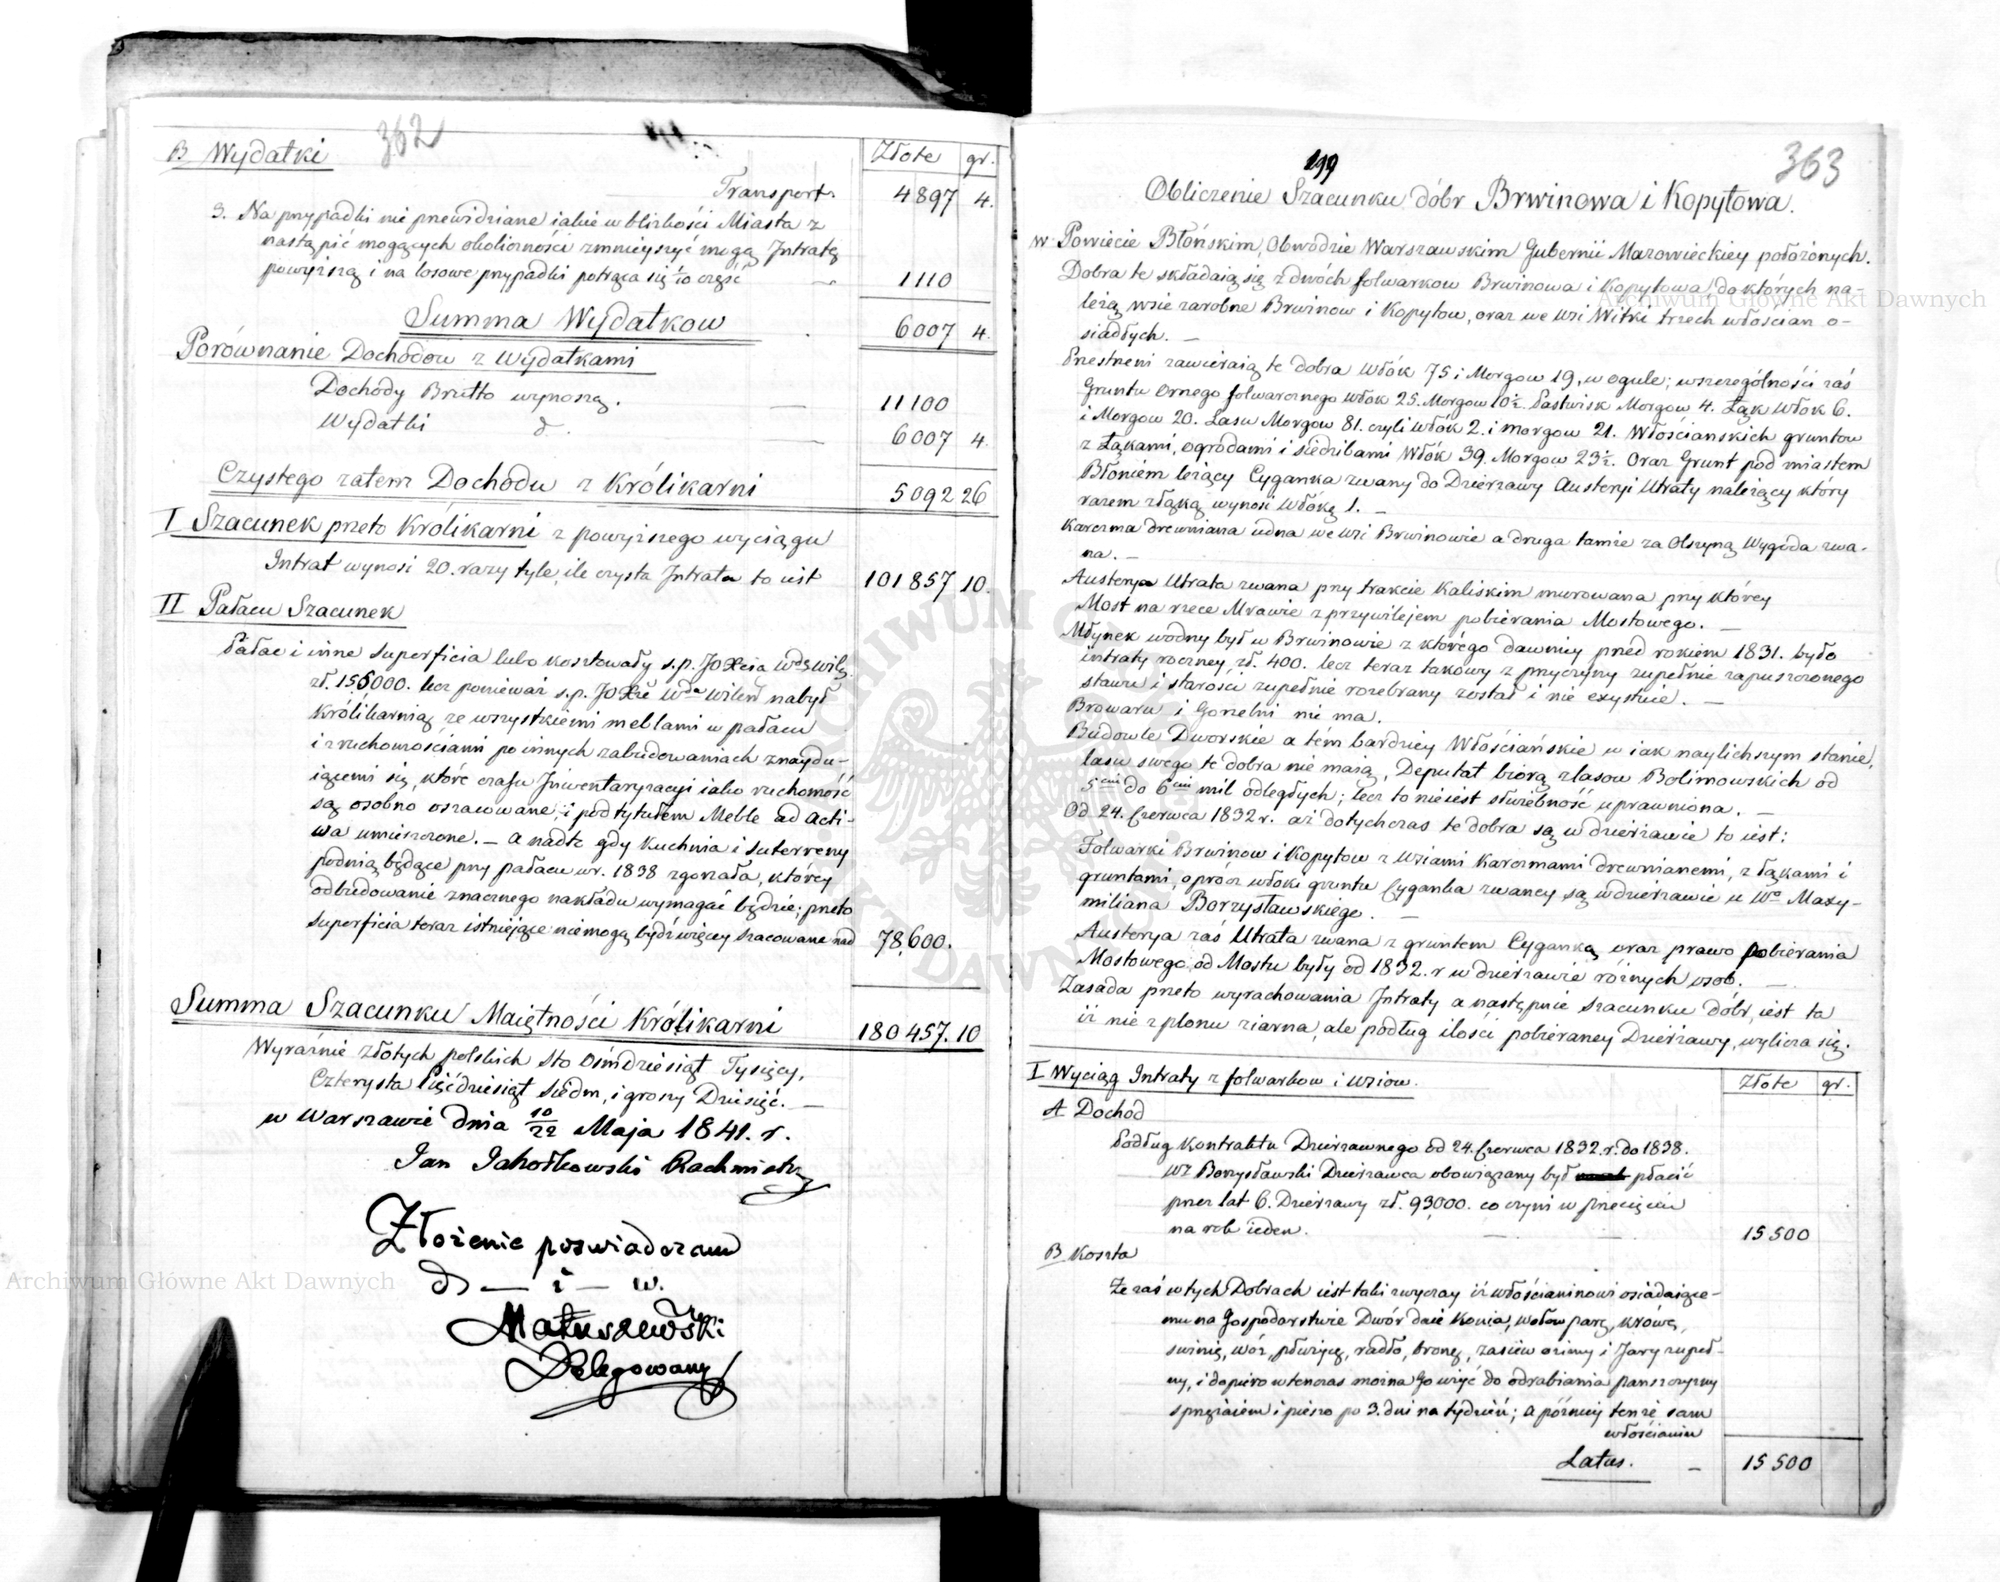 362
B Wydatki
Złote gr.
Transport. 4897 4.
3. Na przypadki nie przewidziane iakie w blizkości Miasta z
nastąpić mogących okoliczności zmnieyszyć mogą Intratę
powyższą i na losowe przypadki potrąca się 1/10 część — 1110
Summa Wydatkow 6007 4.
Porównanie Dochodow z Wydatkami
Dochody Brutto wynoszą. — 11100
Wydatki d. — 6007 4.
Czystego zatem Dochodu z Królikarni 5092 26
I Szacunek przeto Królikarni z powyższego wyciągu
Intrat wynosi 20. razy tyle, ile czysta Intrata to iest 101857 10.
II Pałacu Szacunek
Pałac i inne superficia lubo kosztowały s.p. JO Xcia Wdę Wileń.
zł. 155000. lecz ponieważ s.p. JO Xże Wda Wileń nabył
Królikarnią ze wszystkiemi meblami w pałacu
i z ruchomościami po innych zabudowaniach znaydu-
iącemi się, które czasu Inwentaryzacyi iako ruchomość
są osobno oszacowane, i pod tytułem Meble ad acti-
va umieszczone. — a nadto gdy Kuchnia i suterreny
pod nią będące przy pałacu w r. 1838 zgorzała, którey
odbudowanie znacznego nakładu wymagać będzie; przeto
superficia teraz istniejące nie mogą bydź więcey szacowane nad 78,600.
Summa Szacunku Maiętności Królikarni 180457. 10
Wyraźnie złotych polskich Sto Ośmdziesiąt Tysięcy,
Czterysta Pięćdziesiąt Siedm, i groszy Dziesięć. —
w Warszawie dnia 10/22 Maja 1841. r.
Jan Jakołkowski Rachmistrz
Złożenie poswiadczam
d — i — w.
Matuszewski
Delegowany
363
199
Obliczenie Szacunku dóbr Brwinowa i Kopytowa.
w Powiecie Błońskim, Obwodzie Warszawskim Gubernii Mazowieckiey położonych.
Dobra te składaią się z dwóch folwarkow Brwinowa i Kopytowa do których na-
leżą wsie zarobne Brwinow i Kopytow, oraz we wsi Witki trzech włościan o-
siadłych. —
Przestrzeni zawieraią te dobra Włók 75 i Morgow 19, w ogule; w szczególności zaś
Gruntu Ornego folwarcznego włok 25. Morgow 10½. Pastwisk Morgow 4. Łąk Włok 6.
i Morgow 20. Lasu Morgow 81. czyli Włók 2. i morgow 21. Włościanskich gruntow
z Łąkami, ogrodami i siedzibami Włók 39. Morgow 23½. Oraz Grunt pod miastem
Błoniem leżący Cyganka zwany do Dzierżawy Austeryi Utraty należący który
razem z łąką wynosi Włókę 1. —
Karczma drewniana iedna we wsi Brwinowie a druga tamże za Olszyną Wygoda zwa-
na. —
Austerya Utrata zwana przy trakcie Kaliskim murowana przy którey
Most na rzece Mrawie z przywilejem pobierania Mostowego. —
Młynek wodny był w Brwinowie z którego dawniey przed rokiem 1831. było
intraty roczney, zł. 400. lecz teraz takowy z przyczyny zupełnie zapuszczonego
stawu i starości zupełnie rozebrany został i nie exystuie. —
Browaru i Gorzelni nie ma.
Budowle Dworskie a tém bardziey Włościańskie w iak naylichszym stanie,
lasu swego te dobra nie maią, Deputat biorą z lasow Bolimowskich od
5ciu do 6ciu mil odległych; lecz to nie iest służebność uprawniona. —
Od 24. Czerwca 1832 r. aż dotychczas te dobra są w dzierżawie to iest:
Folwarki Brwinow i Kopytow z Wsiami Karczmami drewnianemi, z łąkami i
gruntami, oprocz włoki gruntu Cyganka zwaney są w dzierżawie u Wgo Maxy-
miliana Borzysławskiego. —
Austerya zaś Utrata zwana z gruntem Cyganką oraz prawo pobierania
Mostowego od Mostu były od 1832. r w dzierżawie różnych osob. —
Zasada przeto wyrachowania Intraty a następnie szacunku dóbr, iest ta
iż nie z plonu ziarna, ale podług ilości pobieraney Dzierżawy, wylicza się.
I Wyciąg Intraty z folwarkow i wsiow. Złote gr.
A Dochód
Podług Kontraktu Dzierżawnego od 24. Czerwca 1832. r. do 1838.
Wż Borzysławski Dzierżawca obowiązany był płacić
przez lat 6. Dzierżawy zł. 93,000. co czyni w przecięciu
na rok ieden. — — 15 500
B Koszta
Że zaś w tych Dobrach iest taki zwyczay iż włościaninowi osiadaiące-
mu na Gospodarstwie Dwór daie Konia, wołow parę, krowę,
swinię, wóz, płużycę, radło, bronę, zasiew ozimy i Jary zupeł-
ny, i dopiero wtenczas można go użyć do odrabiania panszczyzny
sprzężaiem i pieszo po 3. dni na tydzień; a późniey tenże sam
włościanin
Latus. — 15 500
Archiwum Główne Akt Dawnych
Archiwum Główne Akt Dawnych